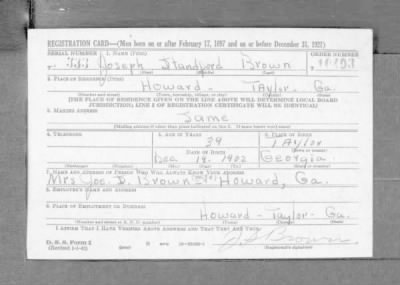 REGISTRATION CARD—(Men born on or after February 17, 1897 and on or before December 31, 1921)
SERIAL NUMBER 1. NAME (Print) ORDER NUMBER
Joseph Standford Brown 11193
(First) (Middle) (Last)
2. PLACE OF RESIDENCE (Print)
Howard - Taylor - Ga.
(Number and street) (Town, township, village, or city) (County) (State)
[THE PLACE OF RESIDENCE GIVEN ON THE LINE ABOVE WILL DETERMINE LOCAL BOARD
JURISDICTION; LINE 2 OF REGISTRATION CERTIFICATE WILL BE IDENTICAL]
3. MAILING ADDRESS
Same
[Mailing address if other than place indicated on line 2. If same insert word same]
4. TELEPHONE 5. AGE IN YEARS 6. PLACE OF BIRTH
39 Taylor
DATE OF BIRTH
Dec 19. 1902 Georgia
7. NAME AND ADDRESS OF PERSON WHO WILL ALWAYS KNOW YOUR ADDRESS
Mrs Joe. S. Brown Howard, Ga.
8. EMPLOYER'S NAME AND ADDRESS
9. PLACE OF EMPLOYMENT OR BUSINESS
Howard - Taylor - Ga.
(Number and street or R. F. D. number) (Town) (County) (State)
I AFFIRM THAT I HAVE VERIFIED ABOVE ANSWERS AND THAT THEY ARE TRUE.
D. S. S. Form 1
J. S. Brown
(Registrant's signature)